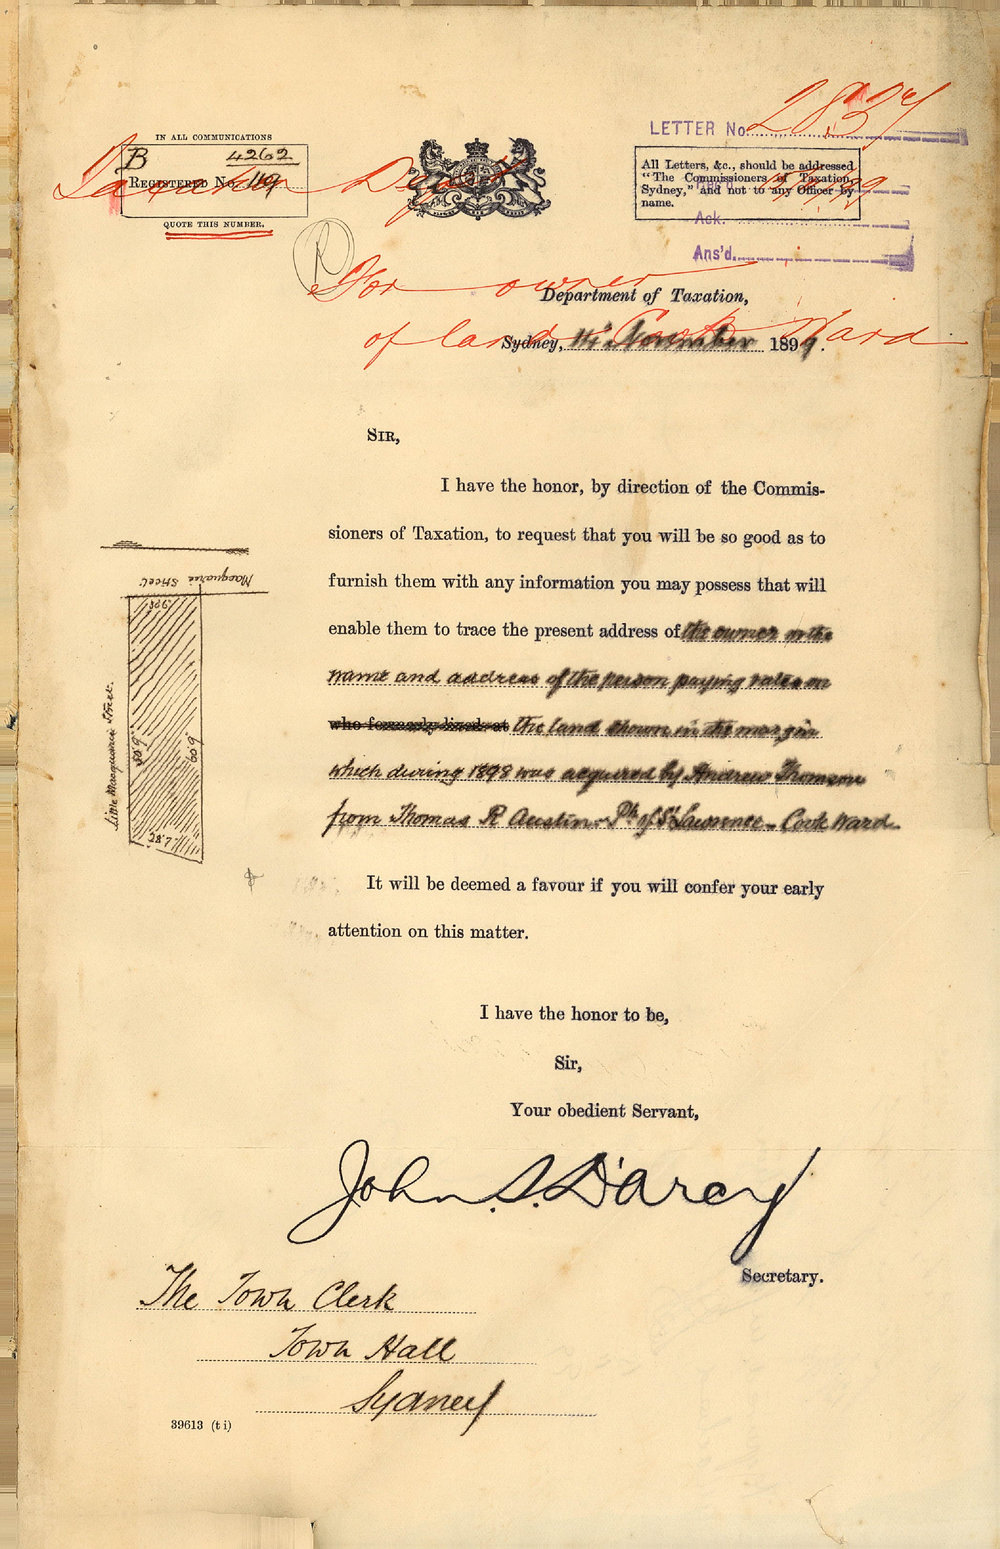 LETTER No. 2837
IN ALL COMMUNICATIONS
B 4262
REGISTERED No. 119
QUOTE THIS NUMBER.
All Letters, &c., should be addressed
"The Commissioners of Taxation,
Sydney," and not to any Officer by
name.
Ack.
Ans'd.
Taxation Dept
R
For owner
of land Cook Ward
Department of Taxation,
Sydney, November 1899.
SIR,
I have the honor, by direction of the Commis-
sioners of Taxation, to request that you will be so good as to
furnish them with any information you may possess that will
enable them to trace the present address of the owner or the
name and address of the person paying rates on
who formerly lived at the land shown in the margin
which during 1898 was acquired by Andrew Thomson
from Thomas R Austin - Ph of St Lawrence - Cook Ward
Macquarie Street
Little Macquarie Street.
60'9"
28.7
It will be deemed a favour if you will confer your early
attention on this matter.
I have the honor to be,
Sir,
Your obedient Servant,
John. S. D'arcy
Secretary.
The Town Clerk
Town Hall
Sydney
39613 (t i)